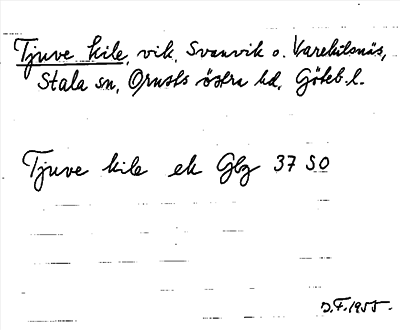 Tjuve kile, vik, Svanvik o. Varekilsnäs,
Stala sn, Orusts östra hd, Göteb. l.
Tjuve kile ek Gbg 37 SO
J.F. 1955